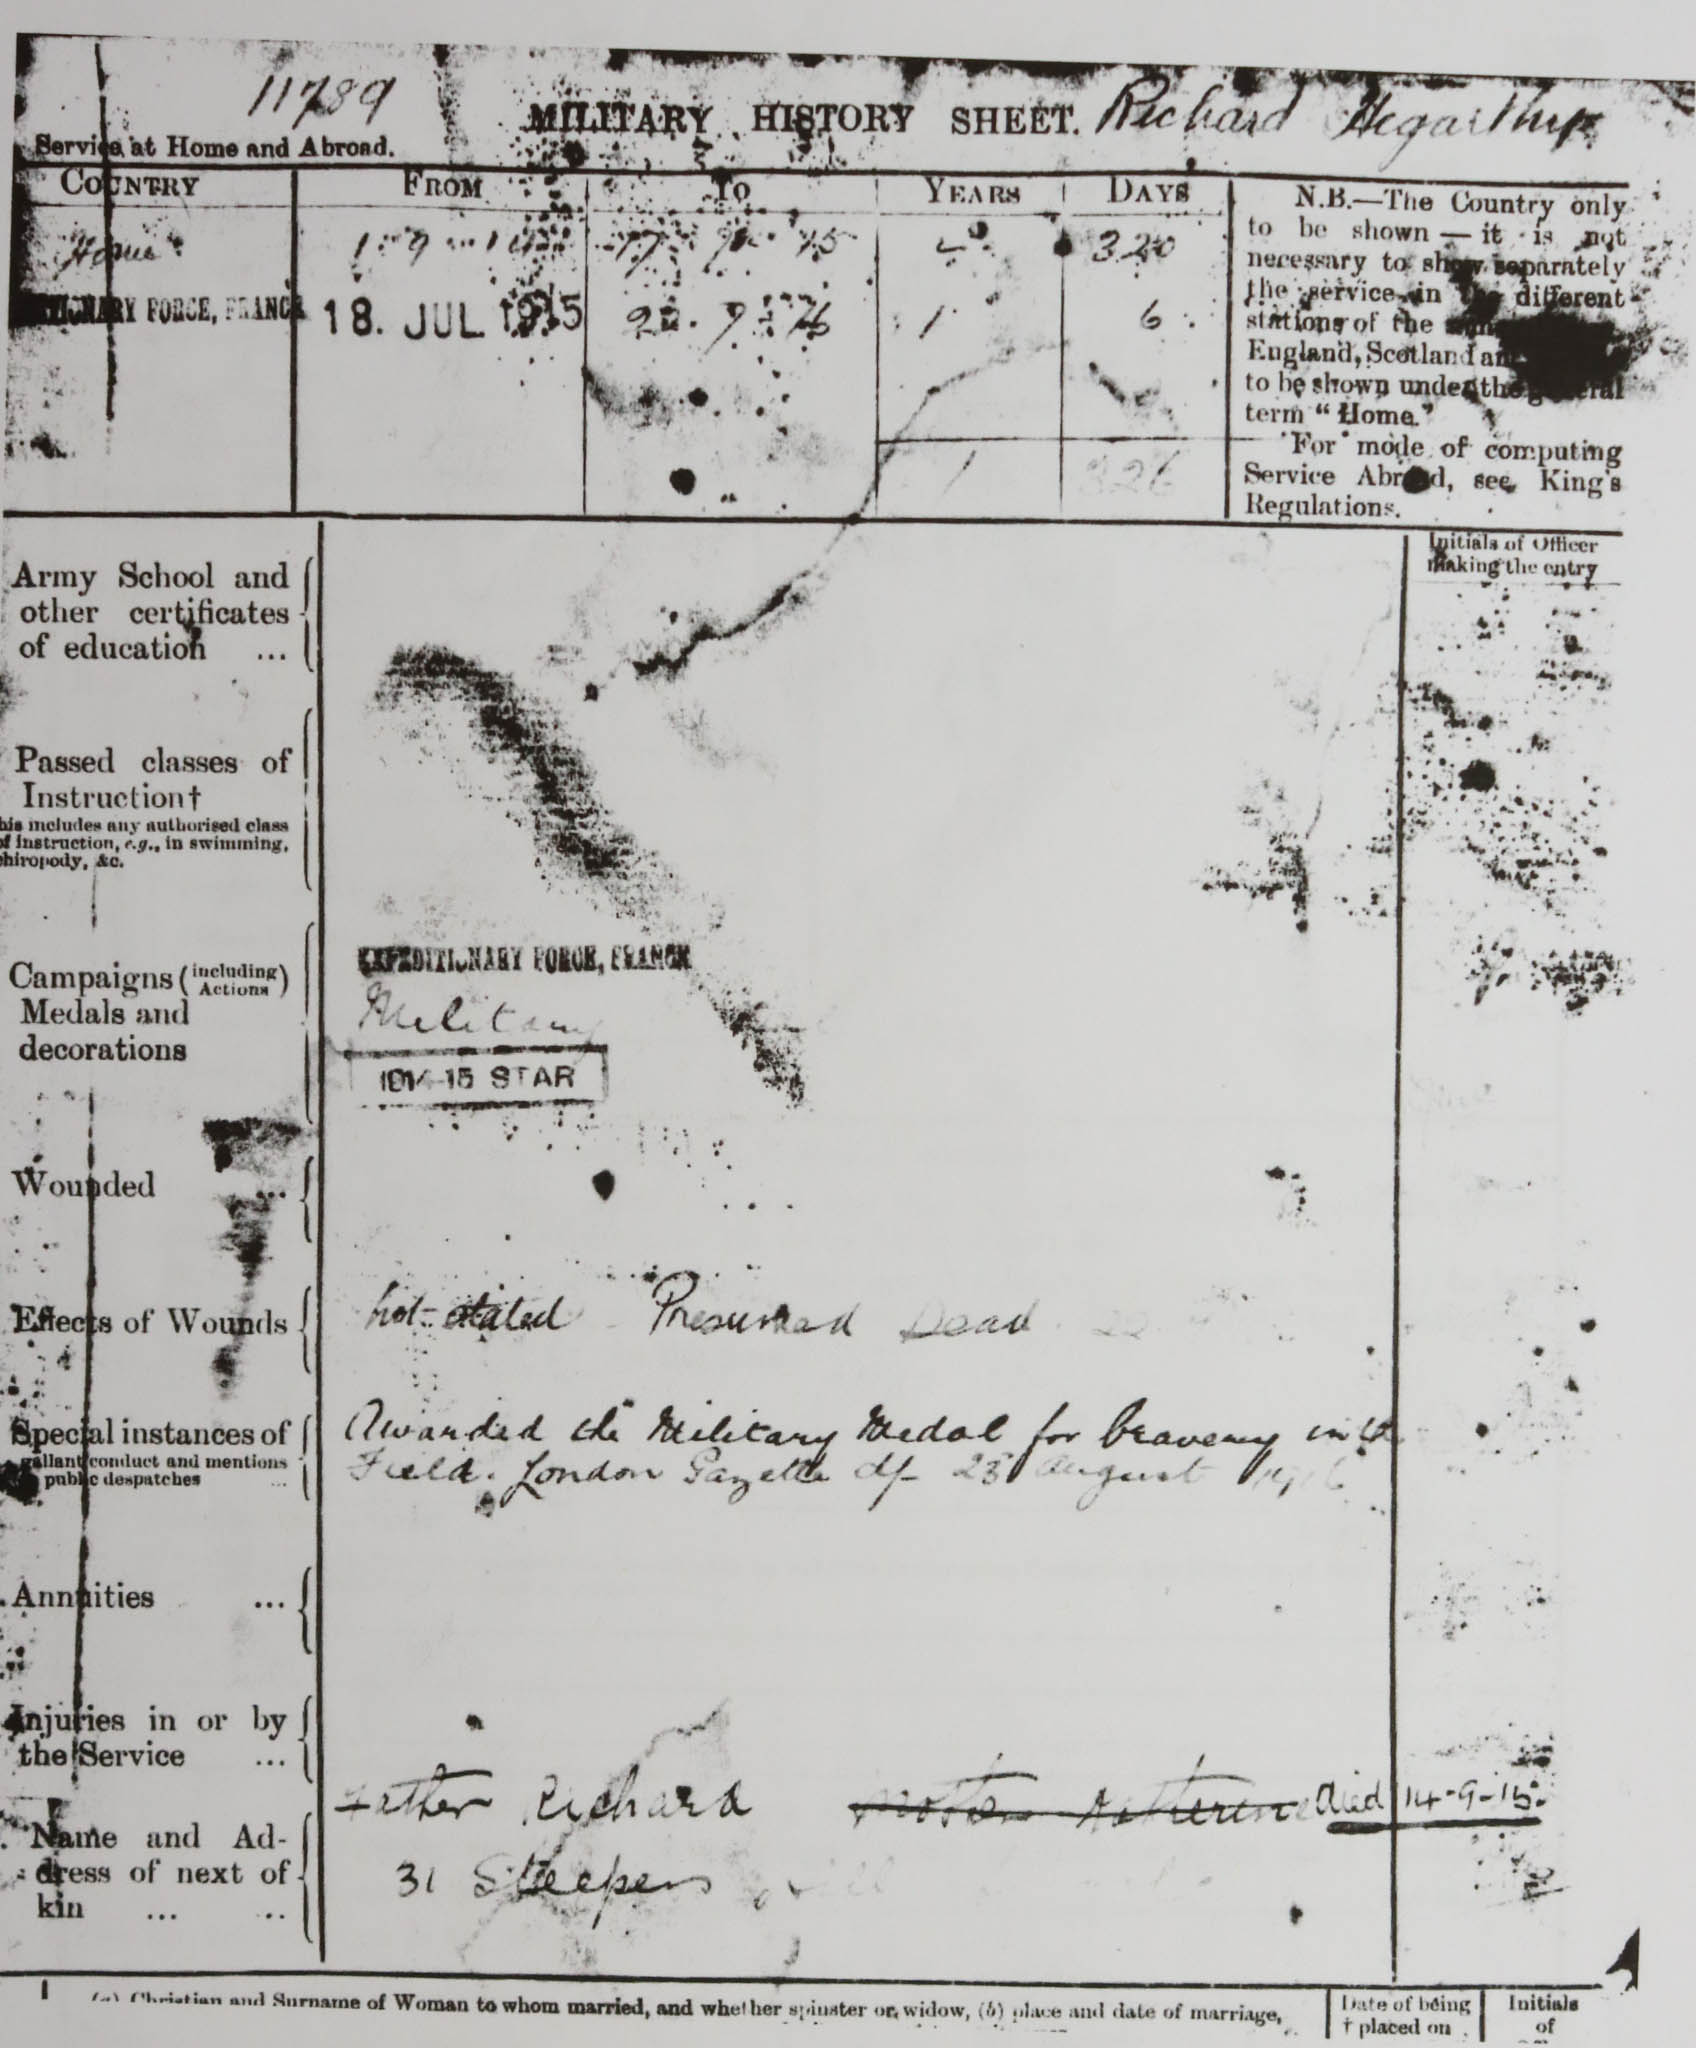 11789
MILITARY HISTORY SHEET. Richard
Service at Home and Abroad.
COUNTRY FROM To YEARS DAYS
Home 1 9 14 17 7 15 320
TIONARY FORCE, FRANCE 18. JUL 1915 7 16 1 6
1 326
N.B.—The Country only
to be shown — it is not
necessary to show separately
the service in the different
stations of the
England, Scotland an
to be shown under the general
term "Home."
For mode of computing
Service Abroad, see King's
Regulations.
Initials of Officer
making the entry
Army School and
other certificates
of education ...
Passed classes of
Instruction†
his includes any authorised class
of instruction, e.g., in swimming,
chiropody, &c.
Campaigns (including Actions)
Medals and
decorations
EXPEDITIONARY FORCE, FRANCE
Military
1914-15 STAR
Wounded ...
Effects of Wounds
not stated Presumed Dead
Special instances of
gallant conduct and mentions
public despatches ...
Awarded the Military Medal for bravery in the
Field. London Gazette d/- 23 August 1916
Annuities ...
Injuries in or by
the Service ...
Name and Ad-
dress of next of
kin ... ..
Father Richard Mother Katherine died 14-9-15
31 Steepers
(a) Christian and Surname of Woman to whom married, and whether spinster or widow, (b) place and date of marriage,
Date of being
† placed on
Initials
of